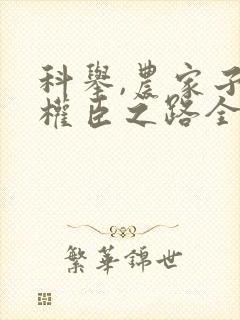 科舉,農家子
權臣之路全
繁華錦世